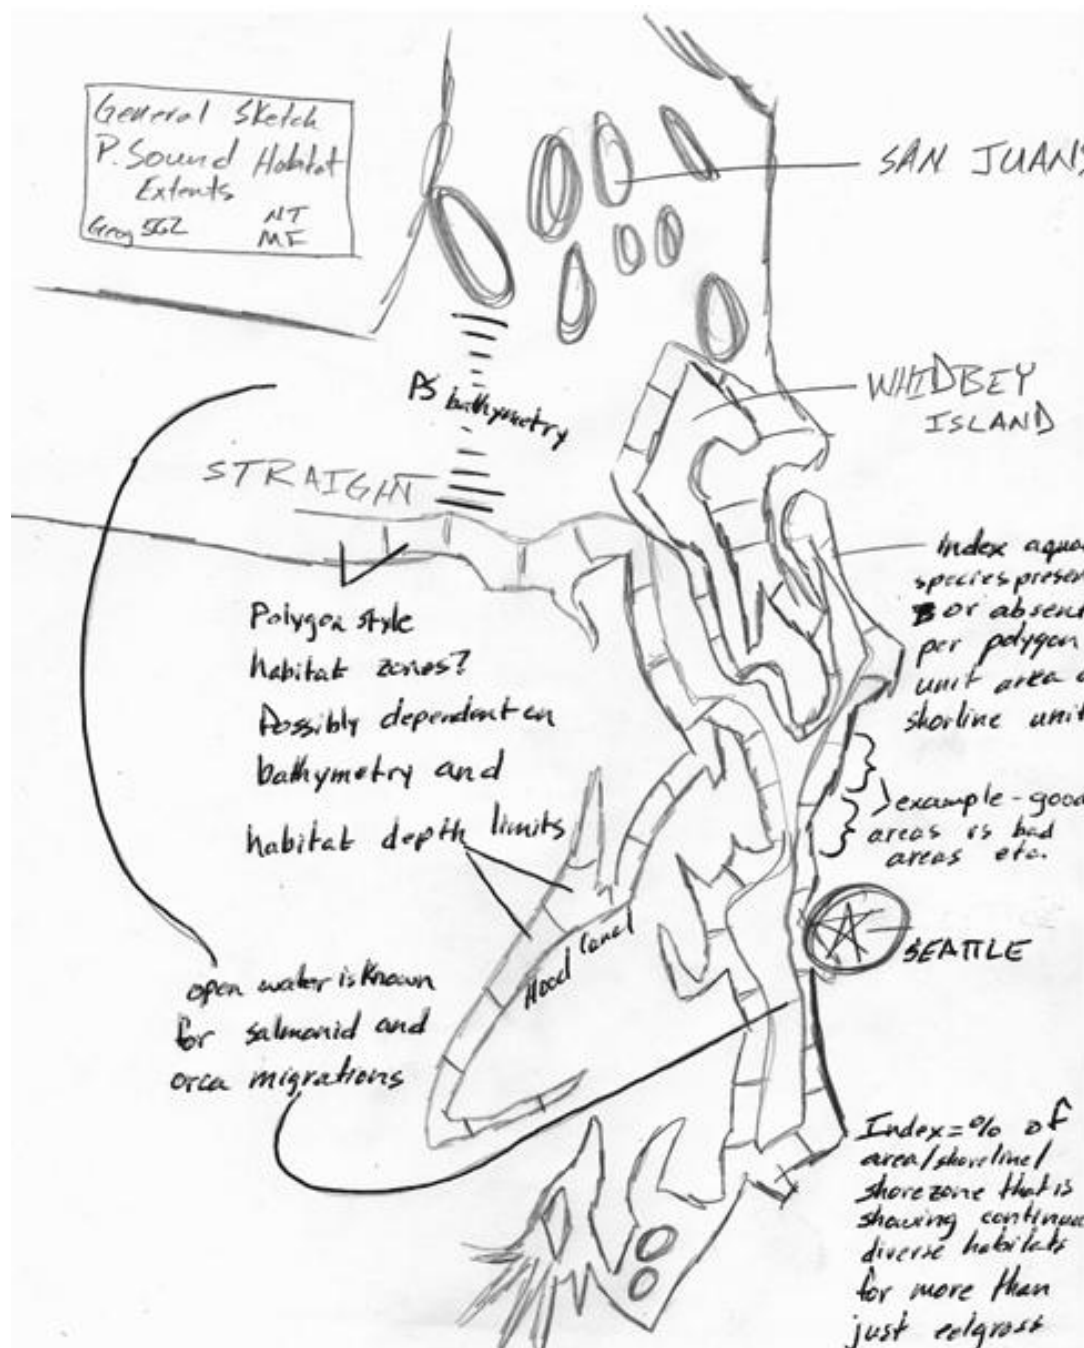 General Sketch
P. Sound Habitat
Extents
Geog 562 NT
MF
SAN JUANS
WHIDBEY
ISLAND
PS bathymetry
STRAIGHT
Index aqua
species presen
or absen
per polygon
unit area o
shorline unit
Polygon style
habitat zones?
Possibly dependent on
bathymetry and
habitat depth limits
example - good
areas vs bad
areas etc.
Hood Canal
SEATTLE
open water is known
for salmonid and
orca migrations
Index = % of
area/shoreline/
shorezone that is
showing continuo
diverse habitats
for more than
just eelgrass